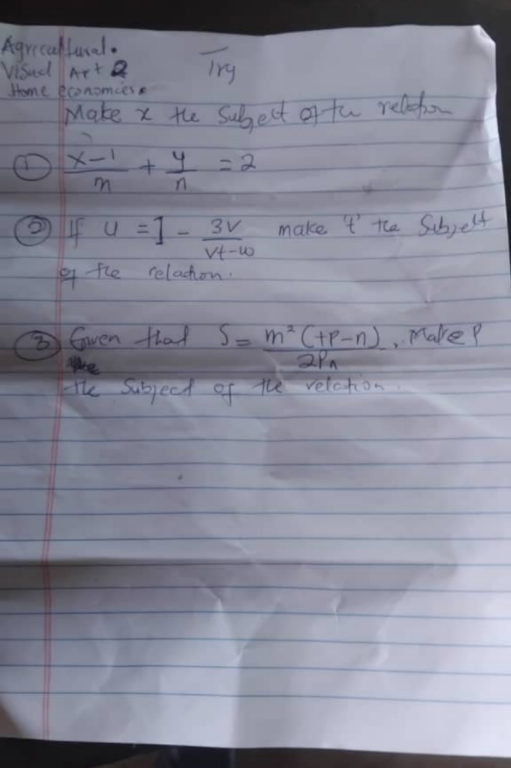 Agricultural.
Visual Art 2
Home economics.
Try
Make x the subject of the relation
① x-1/m + y/n = 2
② If u = 1 - 3v/vt-w make 't' the Subject
of the relation.
③ Given that S = m²(tp-n)/2pn, Make P
the Subject of the relation.